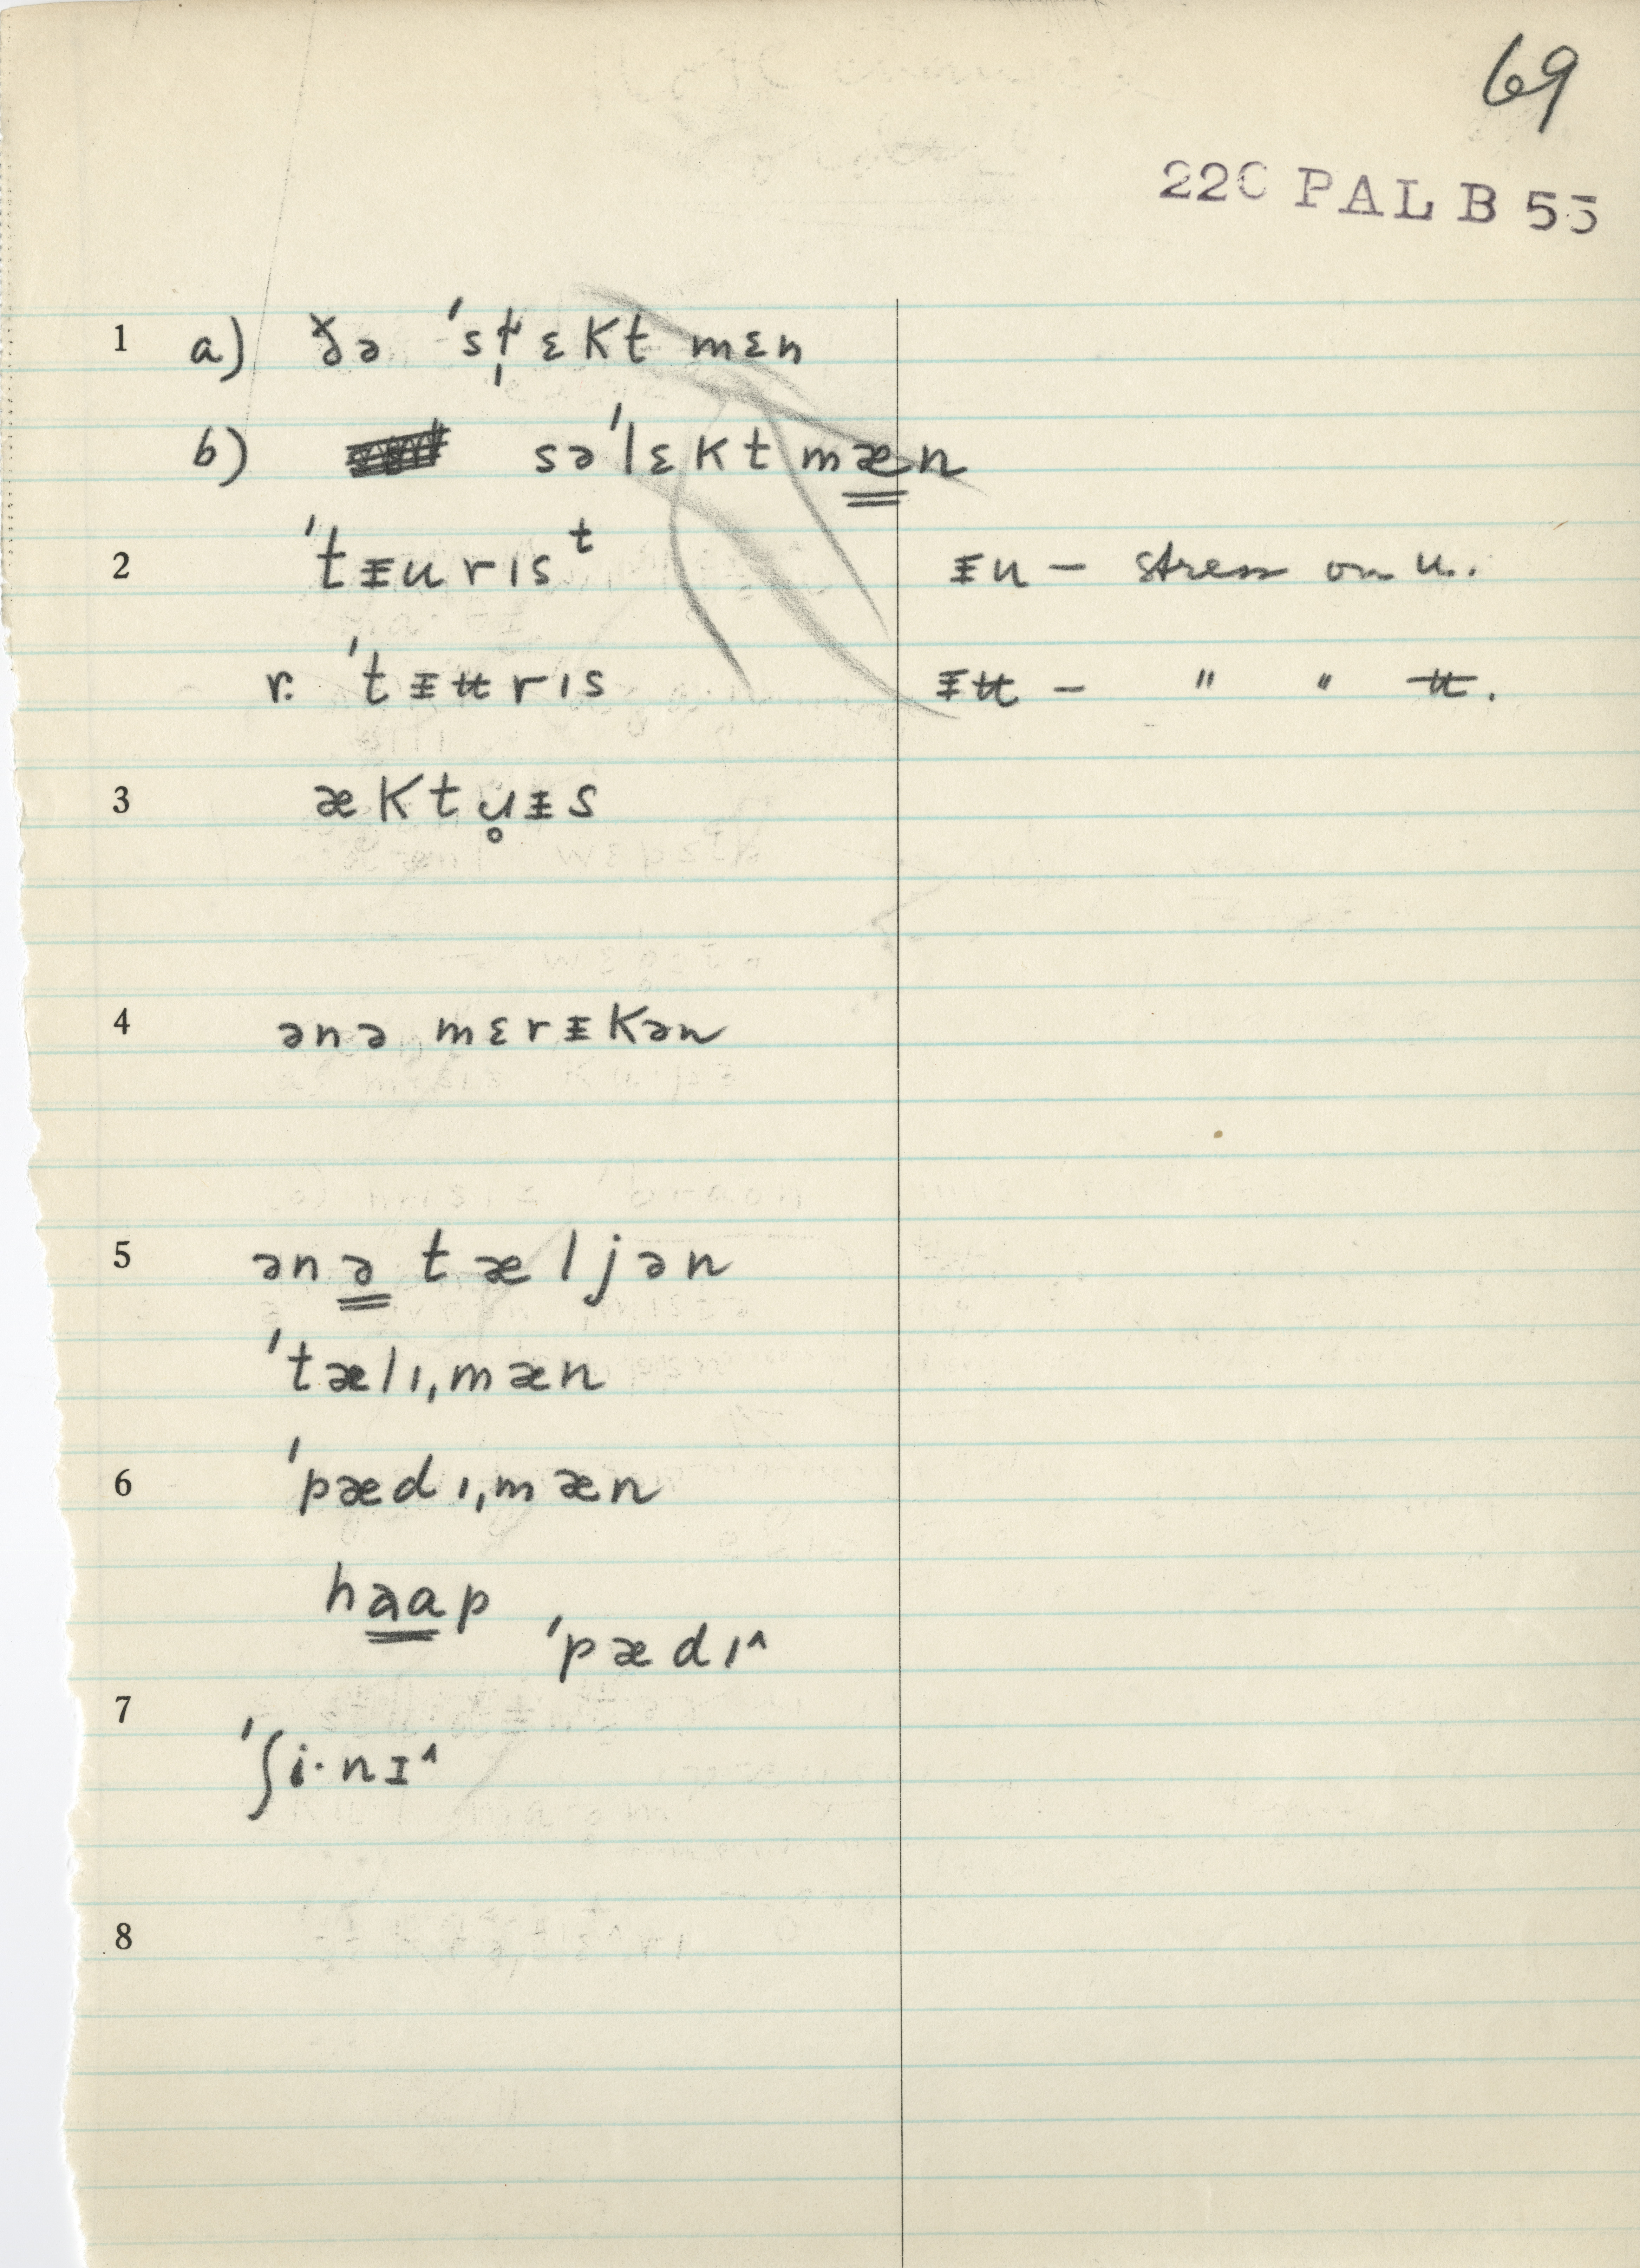 69
220 PAL B 55
1 a) ðə ˈsl̩ɛkt mɛn
b) səˈlɛktmæn
2 ˈtᵻurɪsᵗ ᵻu – stress on u.
r. ˈtᵻʉrɪs ᵻʉ – " " ʉ.
3 æktu̥ᵻs
4 ənə mɛrᵻkən
5 ənə tæljən
ˈtælɪˌmæn
6 ˈpædɪˌmæn
haap
ˈpædɪ^
7
ˈʃi·nɪ^
8